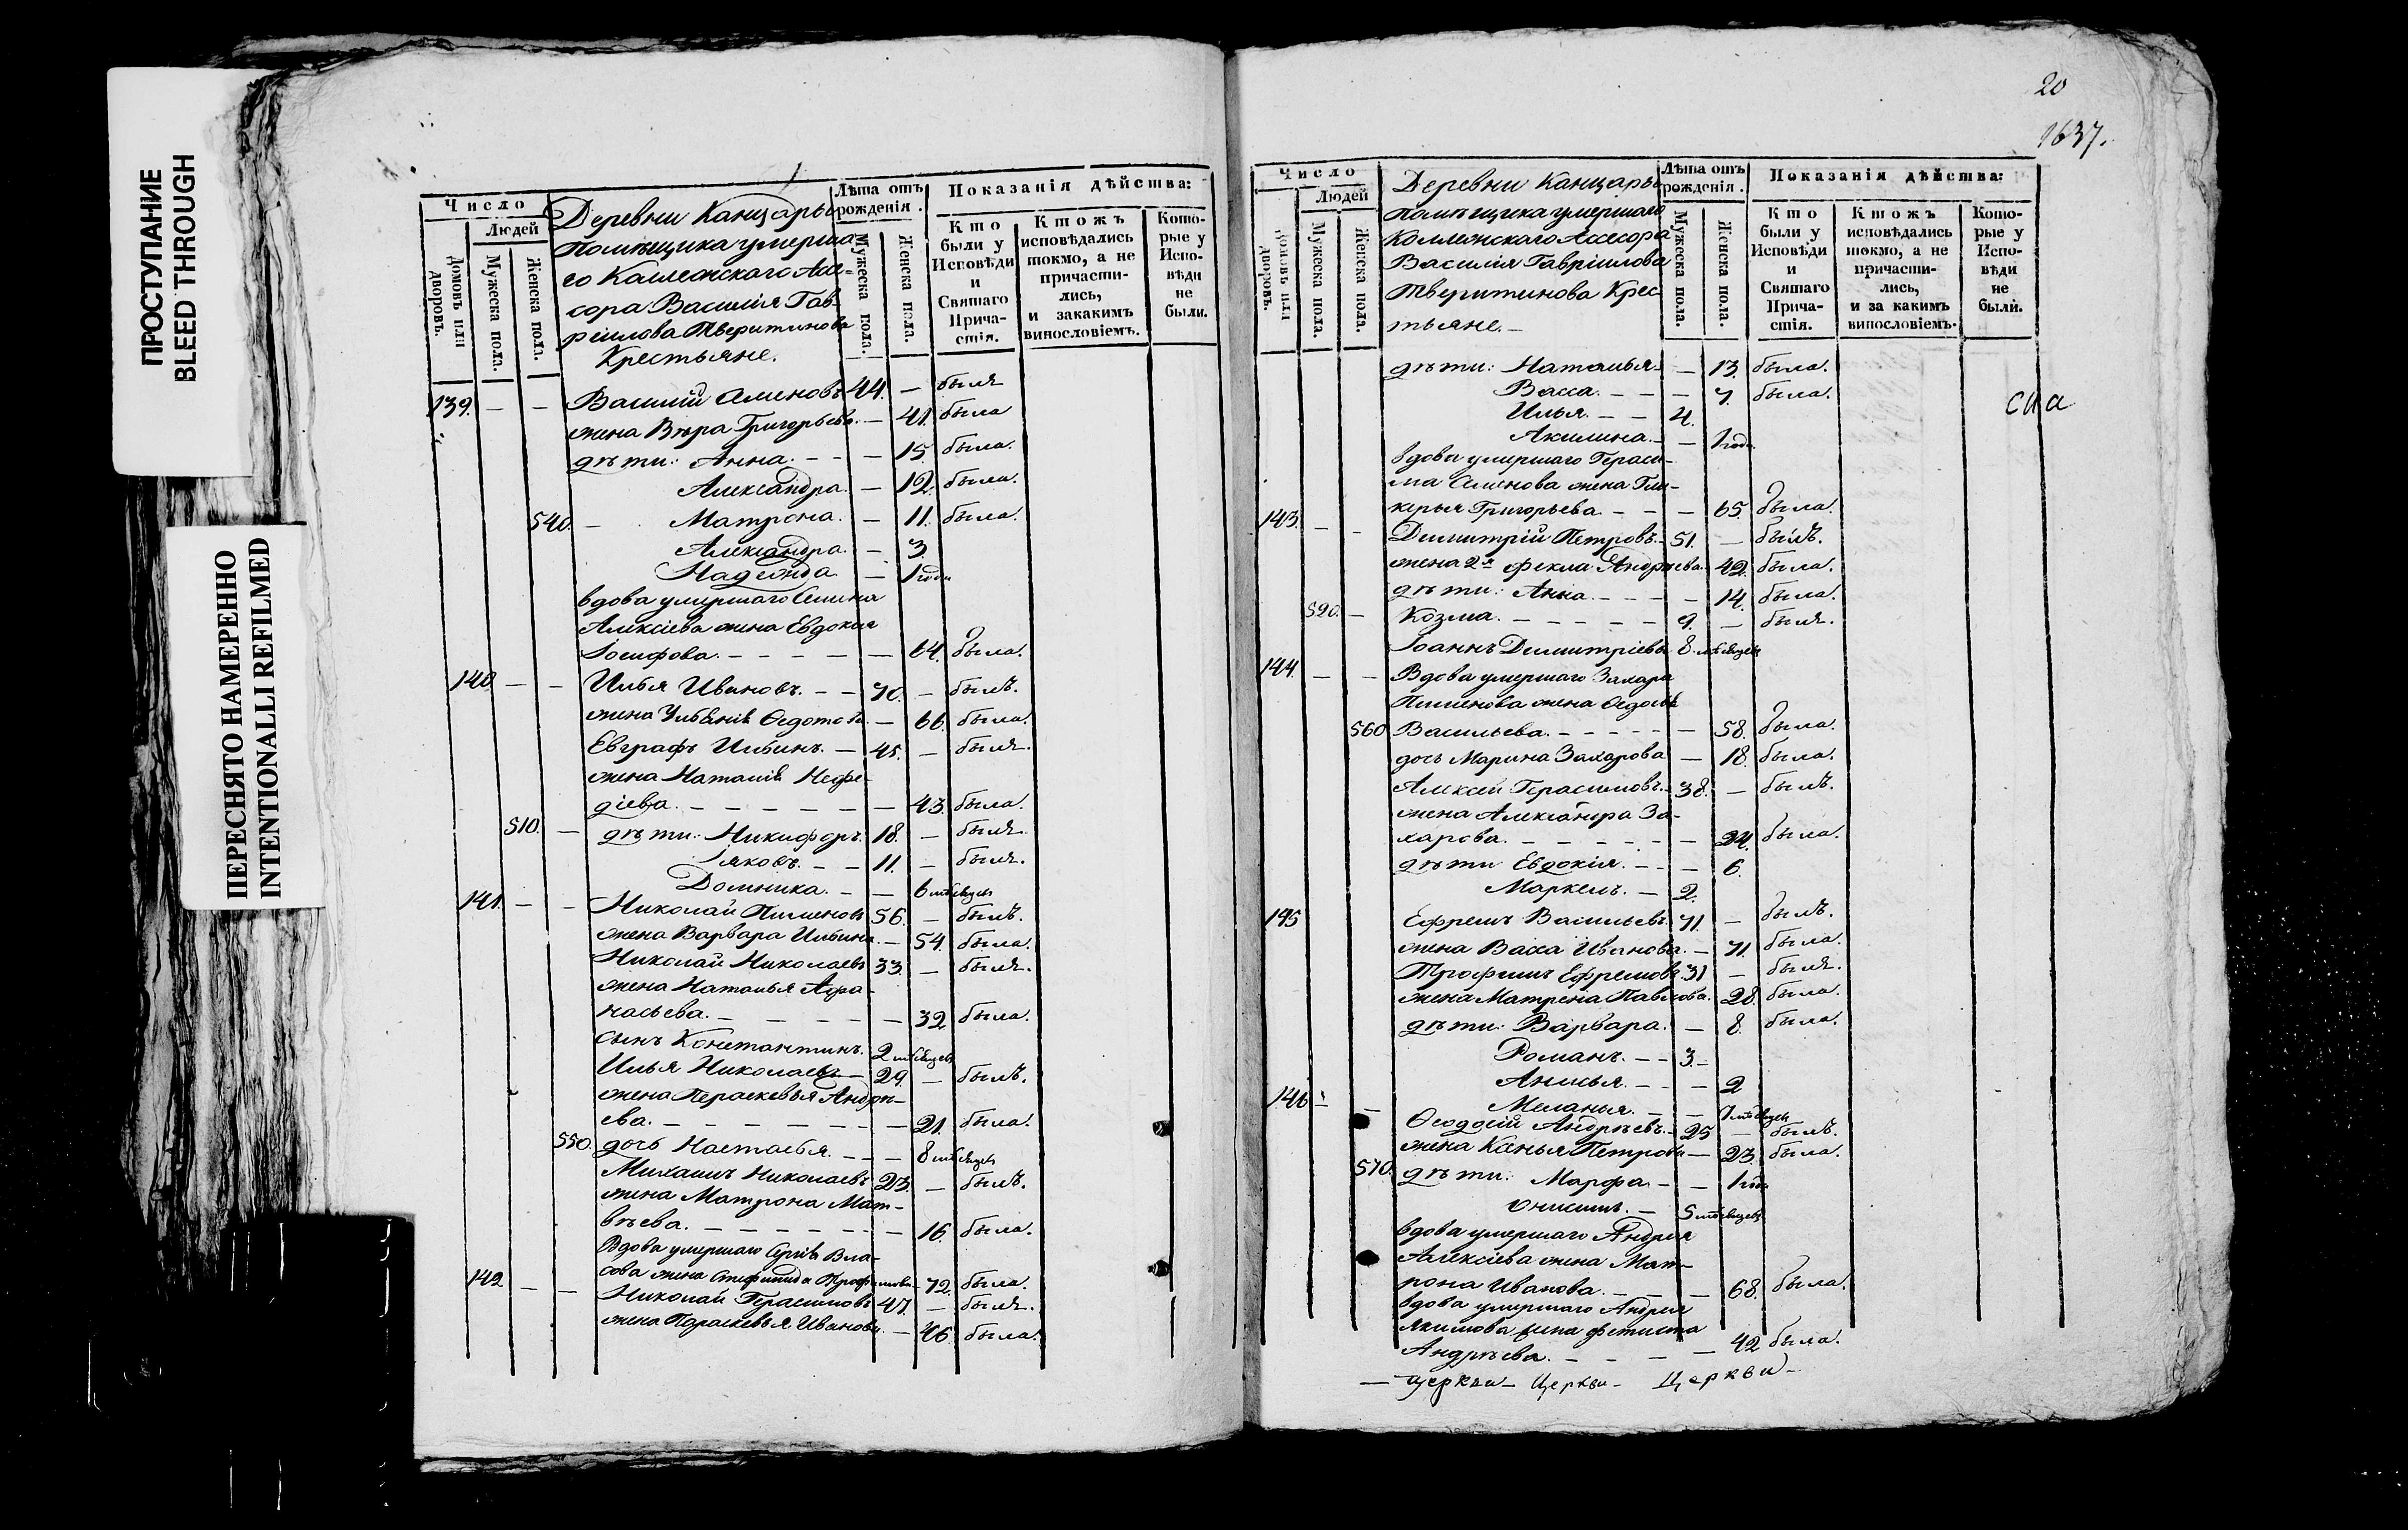 ПРОСТУПАНИЕ
BLEED THROUGH
ПЕРЕСНЯТО НАМЕРЕННО
INTENTIONALLI REFILMED
Число
Людей
Домовъ или дворовъ.
Мужеска пола.
Женска пола.
Деревни Канцарьы
Помѣщика умерша
го Коллежскаго Ассе=
сора Василія Гав-
ріилова Тверитинова
Крестьяне.
Лѣта отъ рожденія.
Мужеска пола.
Женска пола.
Показанія дѣйства:
Кто были у Исповѣди и Святаго Причастія.
Ктожъ исповѣдались токмо, а не причастились, и закакимъ винословіемъ.
Которые у Исповѣди не были.
139. — — Василій Семеновъ 44. — былъ
жена Вѣра Григорьева. — 41. была
дѣти: Анна. — — — 15. была.
Александра. — 12. была.
540. — Матрона. — 11. была.
Александра. — 3.
Надежда. — 1 года
вдова умершаго Семена
Алексіева жена Евдокия
Іосифова. — — — — — 64. была.
140 — — Илья Ивановъ. — — 70. — былъ.
жена Ульянія Ѳедотова. — 66. была.
Евграфъ Ильинъ. — 45. — былъ.
жена Наталія Нефе-
діева. — — — — — — 43. была.
510. — дѣти: Никифоръ. 18. — былъ.
Іаковъ. — — 11. — былъ.
Домника. — — 6 мѣсяцевъ
141. — — Николай Пименовъ 56. — былъ.
жена Варвара Ильина. — 54. была.
Николай Николаевъ 33. — былъ.
жена Наталья Афа-
насьева. — — — — — — 32. была.
сынъ Константинъ. 2 мѣсяцевъ
Илья Николаевъ — 29. — былъ.
жена Параскевья Андрѣ-
ева. — — — — — — — 21. была.
550. дочь Настасья. — — — 8 мѣсяцевъ
Михаилъ Николаевъ 23. — былъ.
жена Матрона Мат-
вѣева. — — — — — — — 16. была.
Вдова умершаго Сергія Вла-
сова жена Трофимова — 72. была.
142 — — Николай Герасимовъ 47. — былъ.
жена Параскевья Иванова. — 46. была.
20
1637.
Число
Людей
Домовъ или дворовъ.
Мужеска пола.
Женска пола.
Деревни Канцарьы
помѣщика умершаго
Коллежскаго Ассесора
Василія Гавріилова
Тверитинова Крес
тьяне. —
Лѣта отъ рожденія.
Мужеска пола.
Женска пола.
Показанія дѣйства:
Кто были у Исповѣди и Святаго Причастія.
Ктожъ исповѣдались токмо, а не причастились, и за какимъ винословіемъ.
Которые у Исповѣди не были.
дѣти: Наталья — — 13. была.
Васса. — — — — 7. была.
Илья. — — 4.
Акилина. — — 1 года
вдова умершаго Гераси-
ма Семенова жена Гли-
керья Григорьева. — — — 65. была.
143. — — Димитрій Петровъ. 51. — былъ.
жена 2я Фекла Андреева. 42. была.
дѣти: Анна. — — — — 14. была.
520. — Козма. — — — — — 9. — былъ.
Іоаннъ Димитріевъ 8 мѣсяцевъ
144. — — Вдова умершаго Захара
Пименова жена Ѳедосья
560 Васильева. — — — — — — 58. была.
дочь Марина Захарова — 18. была.
Алексей Герасимовъ. 38. — былъ.
жена Александра За-
харова. — — — — — — 24. была.
дѣти Евдокія. — — — 6.
Маркелъ. — 2.
145 Ефремъ Васильевъ. 71. — былъ.
жена Васса Иванова. — 71. была.
Трофимъ Ефремовъ. 31 — былъ.
жена Матрена Павлова. 28. была.
дѣти: Варвара. — 8. была.
Романъ. — — 3. —
Анисья. — — — 2
146 — — Меланья. — — 7 мѣсяцевъ
Ѳеодосій Андрѣевъ. 25 — былъ.
жена Петрова — 23. была.
570. дѣти: Марфа. — — 1 года
Онисимъ. — 5 мѣсяцевъ
вдова умершаго Андрея
Алексіева жена Мат-
рона Иванова. — — — — 68. была.
вдова умершаго Андрея
Якимова жена Фетинья
Андрѣева. — — — — 42 была.
— Церкви — Церкви — Церкви —